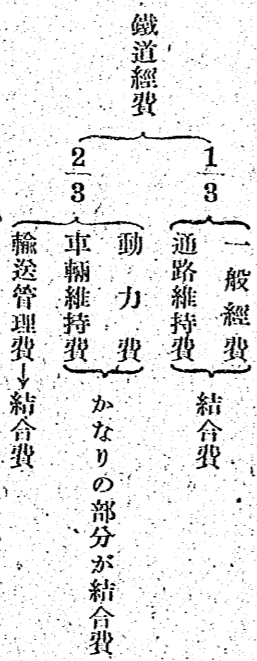 鐵道經費
1/3
一般經費
通路維持費
結合費
2/3
動力費
車輛維持費
かなりの部分が結合費
輸送管理費→結合費